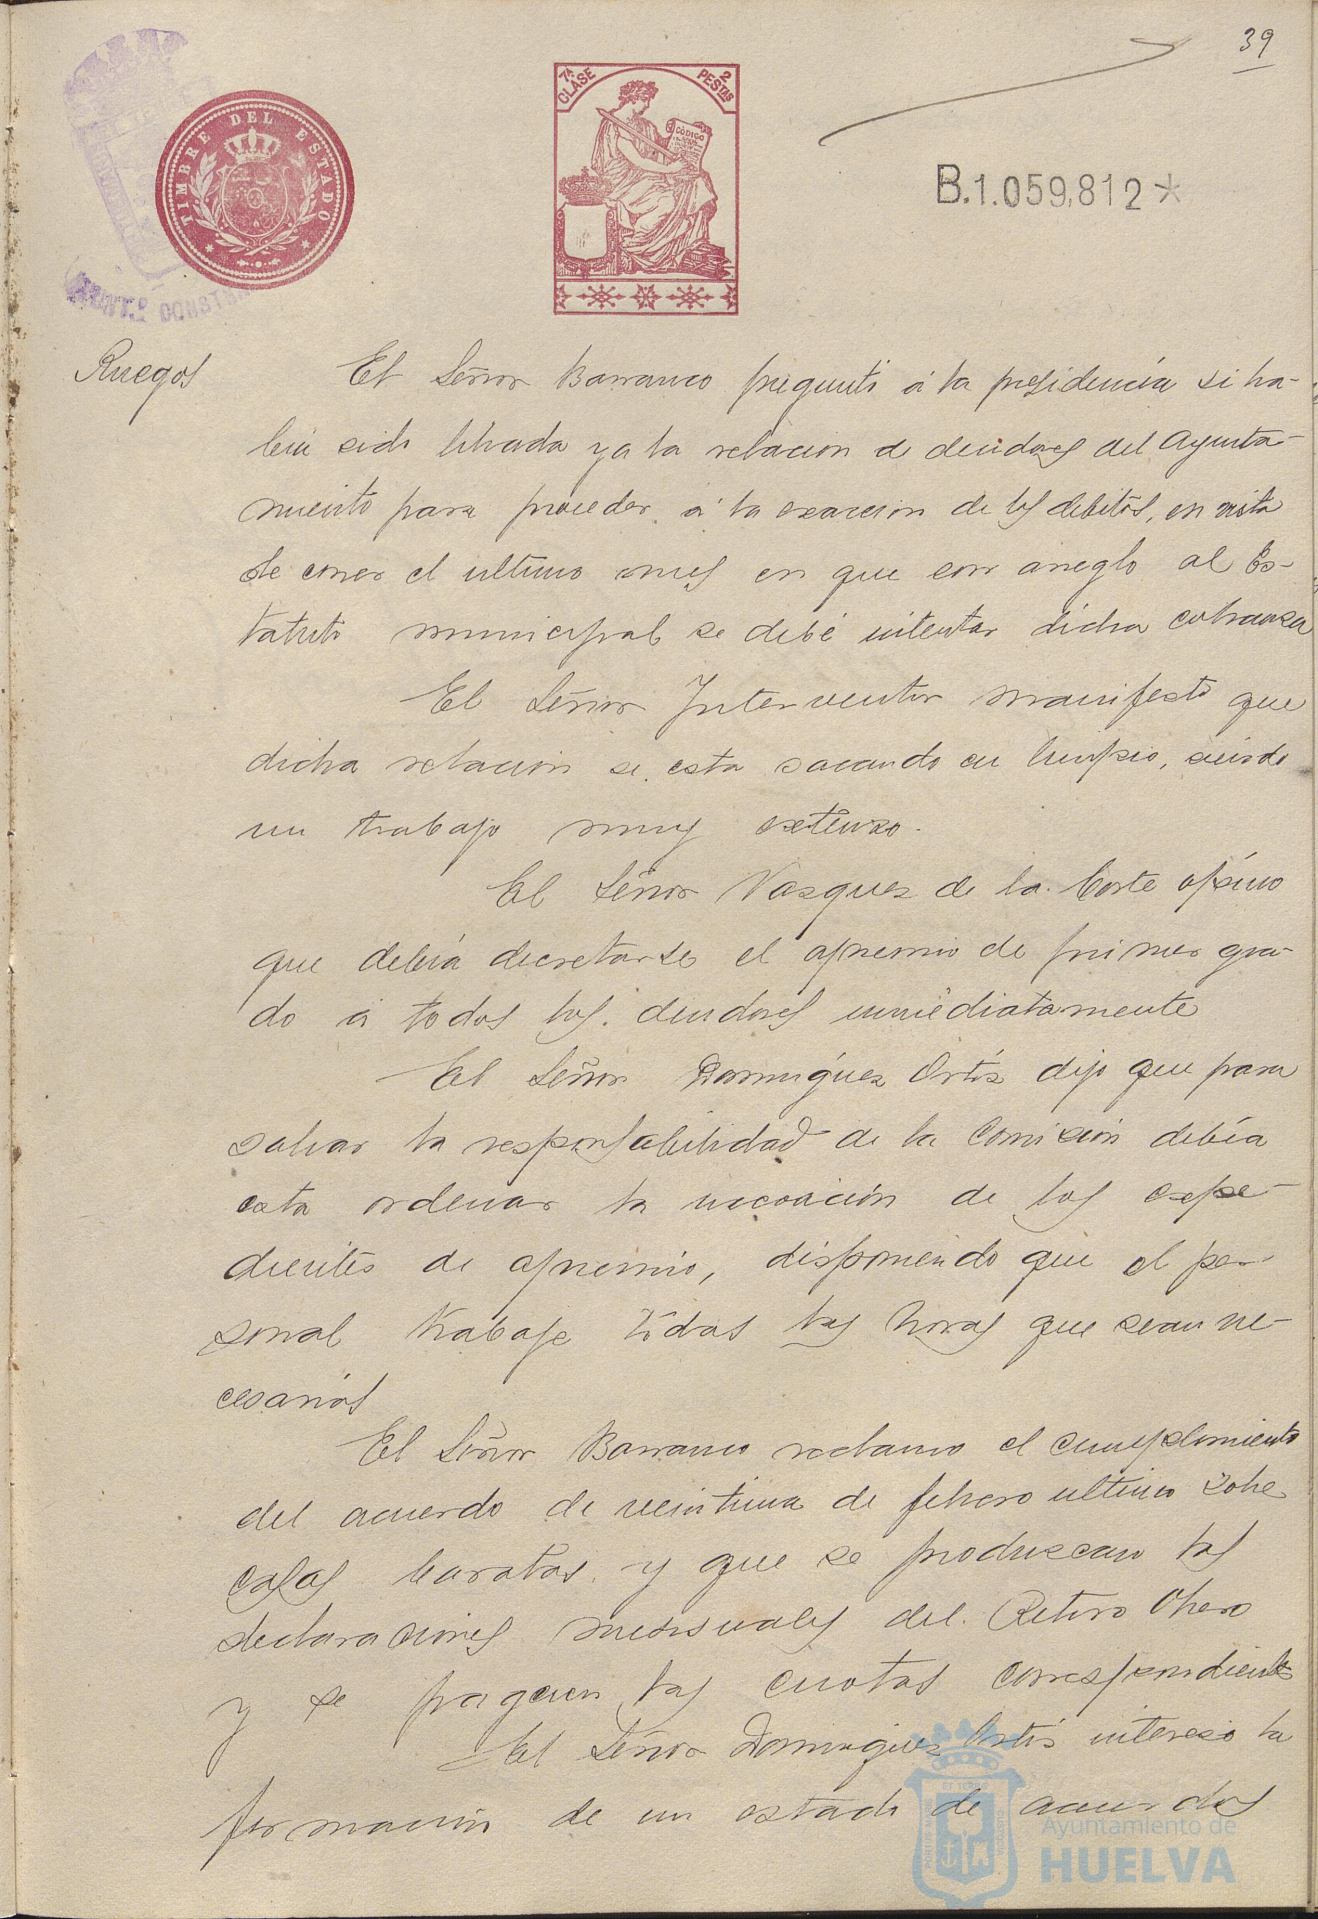 39
TIMBRE DEL ESTADO
7ª CLASE
2 PESTAS
CÓDIGO
B.1.059,812*
AYUNT.º CONST
Ruegos
El Señor Barranco preguntó á la presidencia si ha-
bia sido librada ya la relacion de deudores del Ayunta-
miento para proceder á la exaccion de los debitos, en vista
de correr el ultimo mes en que con arreglo al Es-
tatuto municipal se debe intentar dicha cobranza
El Señor Interventor manifestó que
dicha relacion se esta sacando en limpio, siendo
un trabajo muy extenso.
El Señor Vazquez de la Corte opino
que debía decretarse el apremio de primer gra-
do á todos los deudores inmediatamente
El Señor Dominguez Ortiz dijo que para
salvar la responsabilidad de la Comision debía
esta ordenar la incoación de los expe-
dientes de apremio, disponiendo que el per-
sonal trabaje todas las horas que sean ne-
cesarias
El Señor Barranco reclamo el cumplimiento
del acuerdo de veintiuno de febrero ultimo sobre
casas baratas y que se produzcan las
declaraciones mensuales del Retiro Obrero
y se paguen las cuotas correspondientes
El Señor Dominguez Ortiz intereso la
formación de un estado de acuerdos
Ayuntamiento de
HUELVA